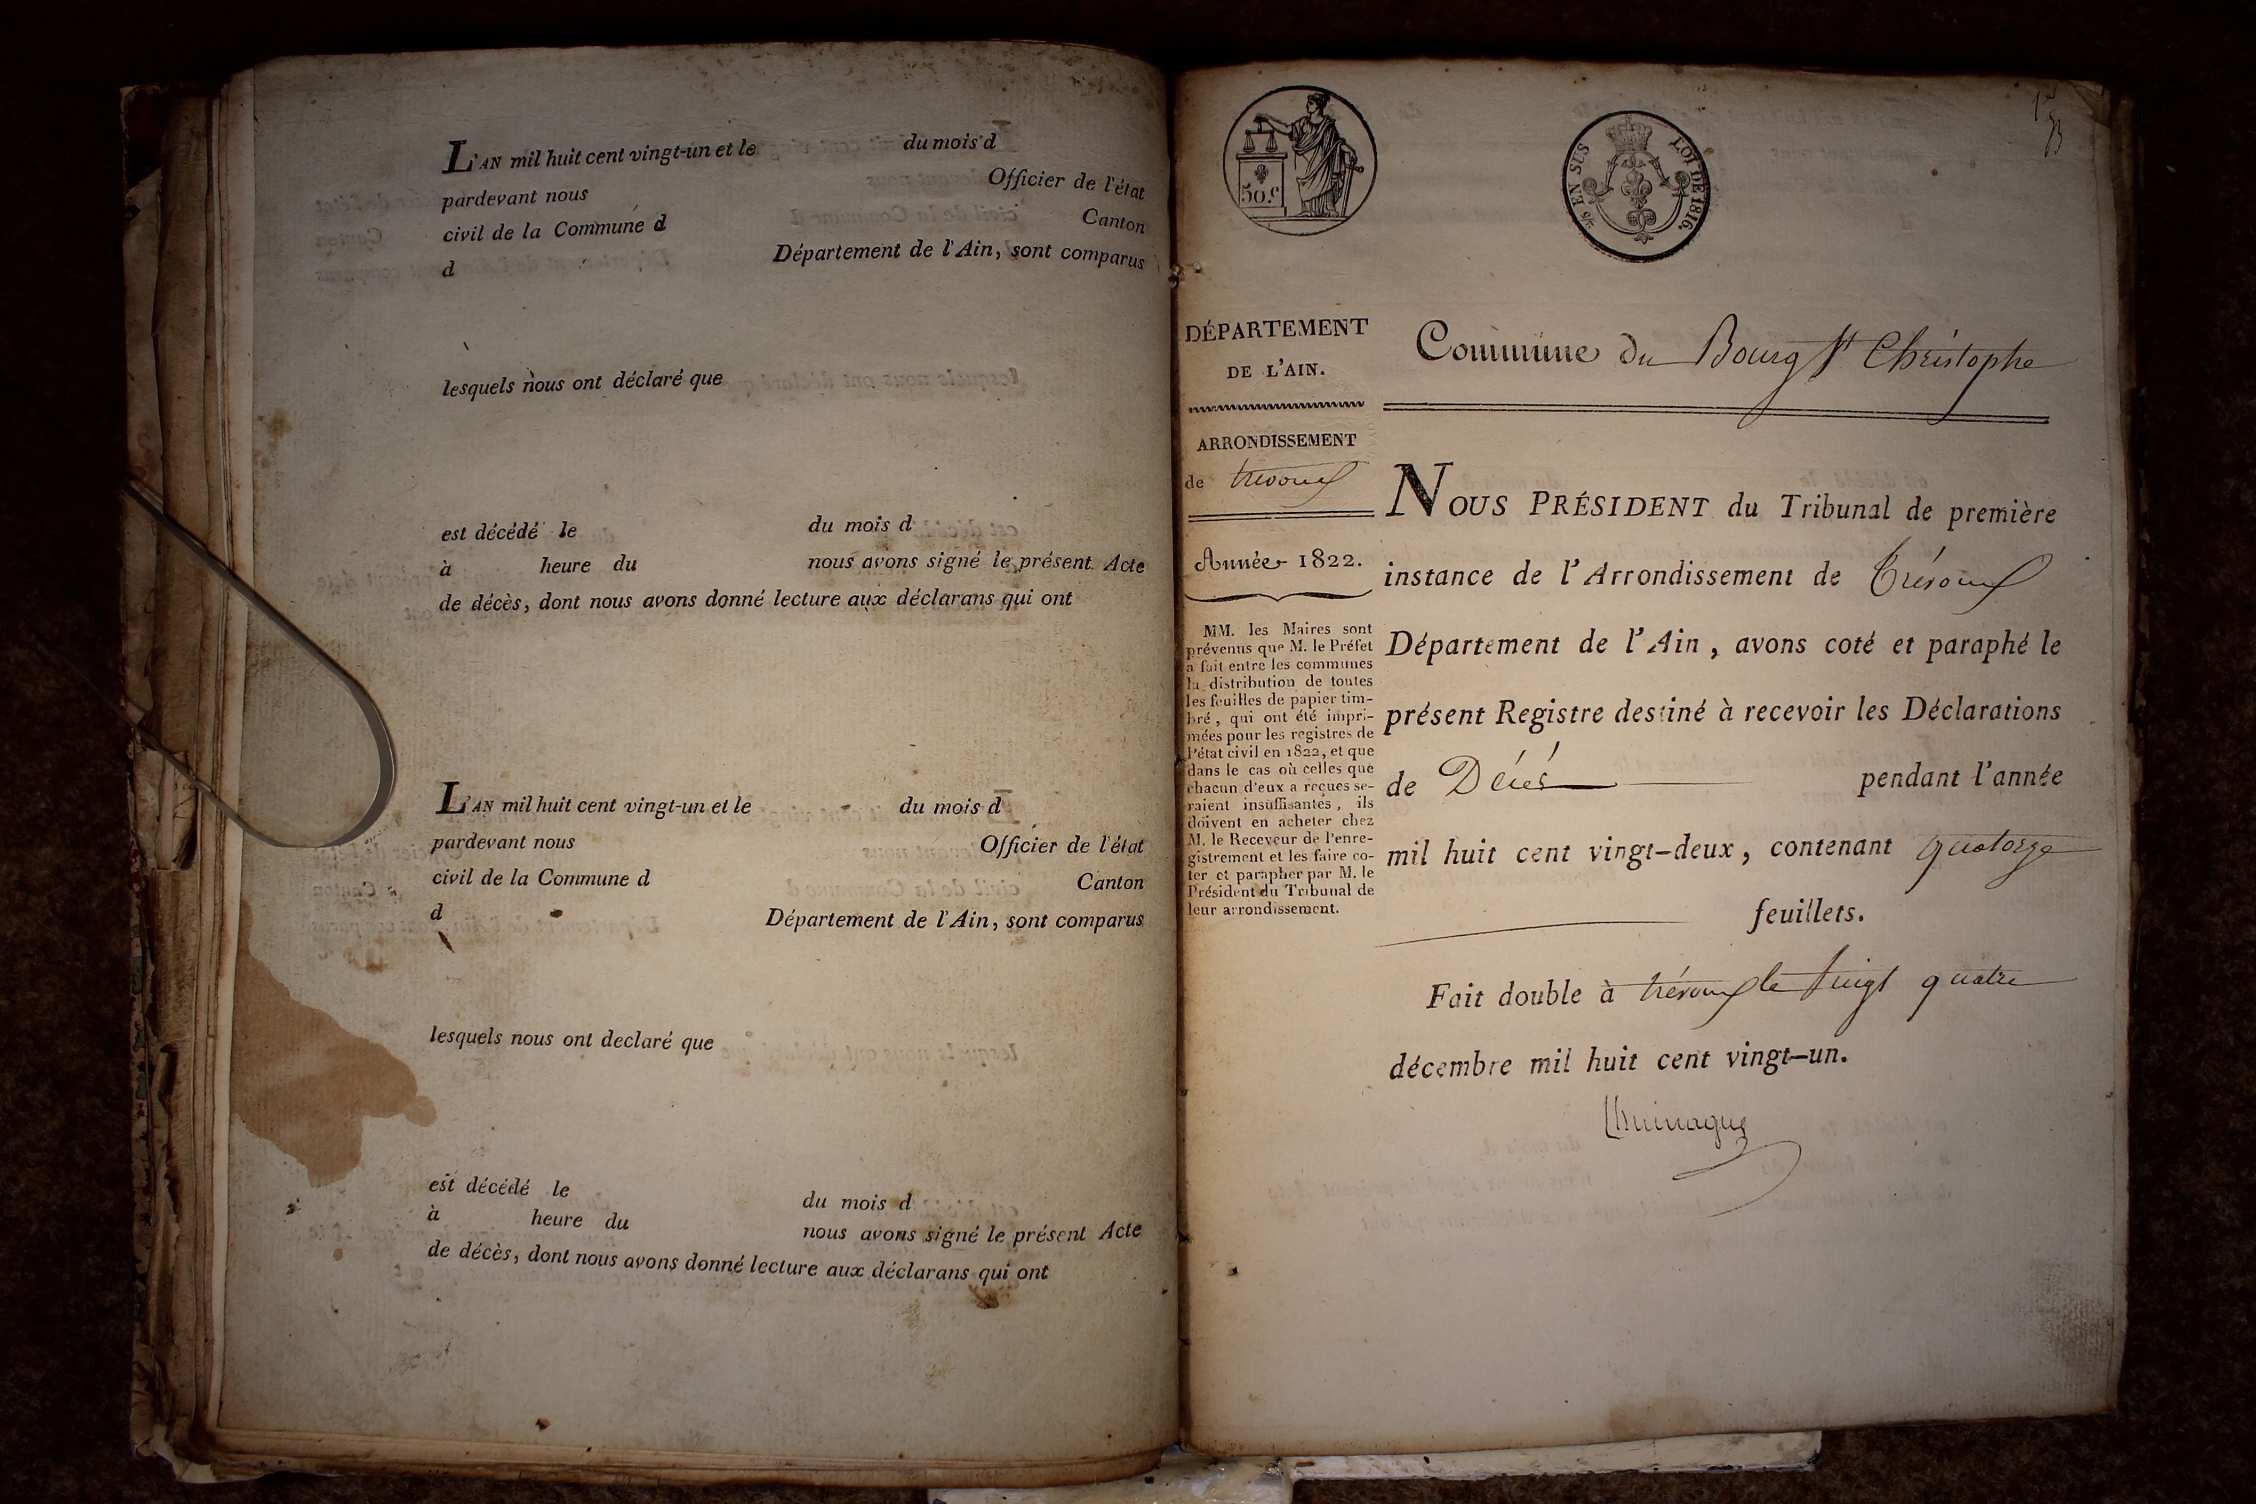 L'AN mil huit cent vingt-un et le du mois d
pardevant nous Officier de l'état
civil de la Commune d Canton
d Département de l'Ain, sont comparus
lesquels nous ont déclaré que
est décédé le du mois d
à heure du nous avons signé le présent Acte
de décès, dont nous avons donné lecture aux déclarans qui ont
L'AN mil huit cent vingt-un et le du mois d
pardevant nous Officier de l'état
civil de la Commune d Canton
d Département de l'Ain, sont comparus
lesquels nous ont declaré que
est décédé le du mois d
à heure du nous avons signé le présent Acte
de décès, dont nous avons donné lecture aux déclarans qui ont
50.c
EN SUS LOI DE 1816.
DÉPARTEMENT
DE L'AIN.
ARRONDISSEMENT
de trevoux
Année 1822.
MM. les Maires sont
prévenus que M. le Préfet
a fait entre les communes
la distribution de toutes
les feuilles de papier tim-
bré, qui ont été impri-
mées pour les registres de
l'état civil en 1822, et que
dans le cas où celles que
chacun d'eux a reçues se-
raient insuffisantes, ils
doivent en acheter chez
M. le Receveur de l'enre-
gistrement et les faire co-
ter et parapher par M. le
Président du Tribunal de
leur arrondissement.
Commune du Bourg St Christophe
NOUS PRÉSIDENT du Tribunal de première
instance de l'Arrondissement de Trévoux
Département de l'Ain, avons coté et paraphé le
présent Registre destiné à recevoir les Déclarations
de Décés pendant l'année
mil huit cent vingt-deux, contenant quatorze
feuillets.
Fait double à trévoux le vingt quatre
décembre mil huit cent vingt-un.